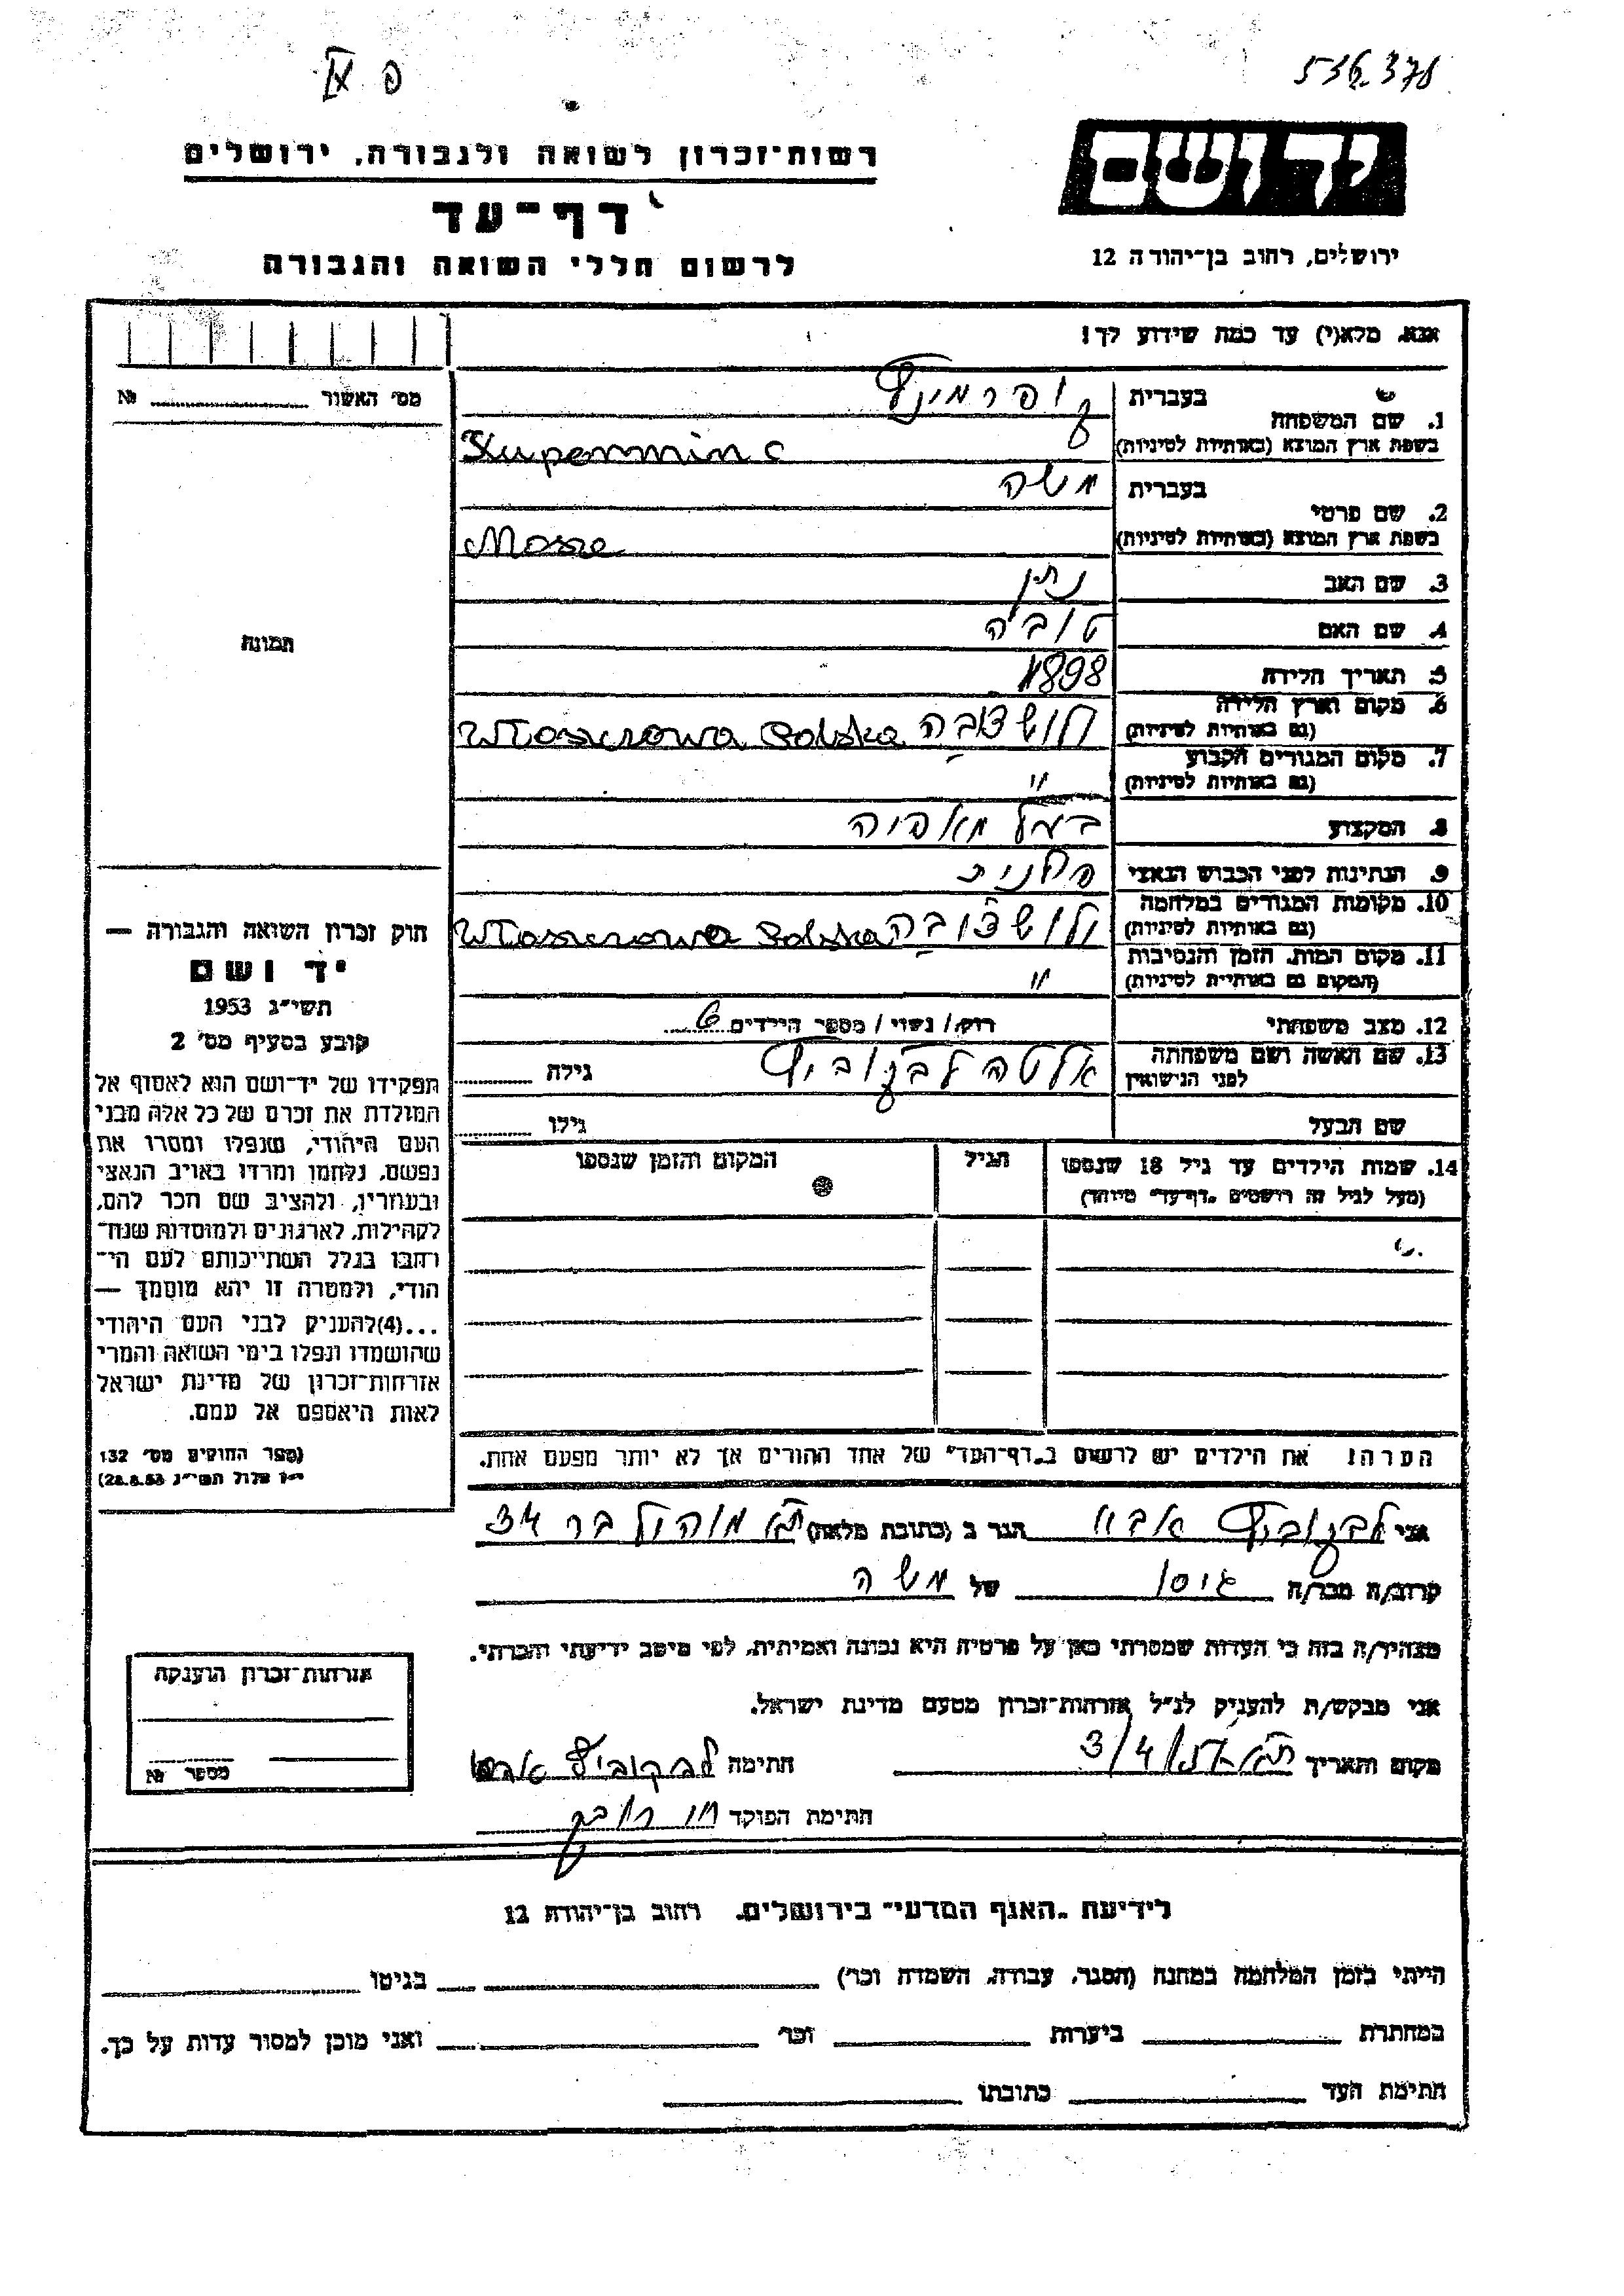 פ XI
536378
רשות־זכרון לשואה ולגבורה, ירושלים
דף־עד
לרשום חללי השואה והגבורה
יד ושם
ירושלים, רחוב בן־יהודה 12
אנא, מלא(י) עד כמה שידוע לך!
מס' האשור № 
1. שם המשפחה
בעברית קופרמינץ
בשפת ארץ המוצא (באותיות לטיניות) Kuperminc
2. שם פרטי
בעברית משה
בשפת ארץ המוצא (באותיות לטיניות) Mosze
3. שם האב נתן
4. שם האם טוביה
5. תאריך הלידה 1898
6. מקום וארץ הלידה
(גם באותיות לטיניות) Wloszczowa Polska
7. מקום המגורים הקבוע
(גם באותיות לטיניות) "
8. המקצוע בעל מאפיה
9. הנתינות לפני הכבוש הנאצי פולנית
10. מקומות המגורים במלחמה
(גם באותיות לטיניות) Wloszczowa Polska
11. מקום המות, הזמן והנסיבות
(המקום גם באותיות לטיניות) "
12. מצב משפחתי רווק / נשוי / מספר הילדים 6
13. שם האשה ושם משפחתה
לפני הנישואין אלטה לבקוביץ גילה
שם הבעל גילו
14. שמות הילדים עד גיל 18 שנספו
(מעל לגיל זה רושמים "דף־עד" מיוחד)
הגיל
המקום והזמן שנספו
הערה: את הילדים יש לרשום ב"דף־העד" של אחד ההורים אך לא יותר מפעם אחת.
תמונה
חוק זכרון השואה והגבורה —
יד ושם
תשי"ג 1953
קובע בסעיף מס' 2
תפקידו של יד־ושם הוא לאסוף אל
המולדת את זכרם של כל אלה מבני
העם היהודי, שנפלו ומסרו את
נפשם, נלחמו ומרדו באויב הנאצי
ובעוזריו, ולהציב שם וזכר להם,
לקהילות, לארגונים ולמוסדות שנח־
רבו בגלל השתייכותם לעם הי־
הודי, ולמטרה זו יהא מוסמך —
...(4)להעניק לבני העם היהודי
שהושמדו ונפלו בימי השואה והמרי
אזרחות־זכרון של מדינת ישראל
לאות היאספם אל עמם.
(ספר החוקים מס' 132
י"ז אלול תשי"ג 28.8.53)
אני לבקוביץ אבא הגר ב (כתובת מלאה) ת"א מוהליבר 34
קרוב/ה מכר/ה גיסו של משה
מצהיר/ה בזה כי העדות שמסרתי כאן על פרטיה היא נכונה ואמיתית, לפי מיטב ידיעתי והכרתי.
אני מבקש/ת להעניק לנ"ל אזרחות־זכרון מטעם מדינת ישראל.
מקום ותאריך חתימה לבקוביץ אבא
חתימת הפוקד
אזרחות־זכרון הוענקה
מספר №
לידיעת "האגף המדעי" בירושלים, רחוב בן־יהודה 12
הייתי בזמן המלחמה במחנה (הסגר, עבודה, השמדה וכו') בגיטו
במחתרת ביערות וכו' ואני מוכן למסור עדות על כך.
חתימת העד כתובתו